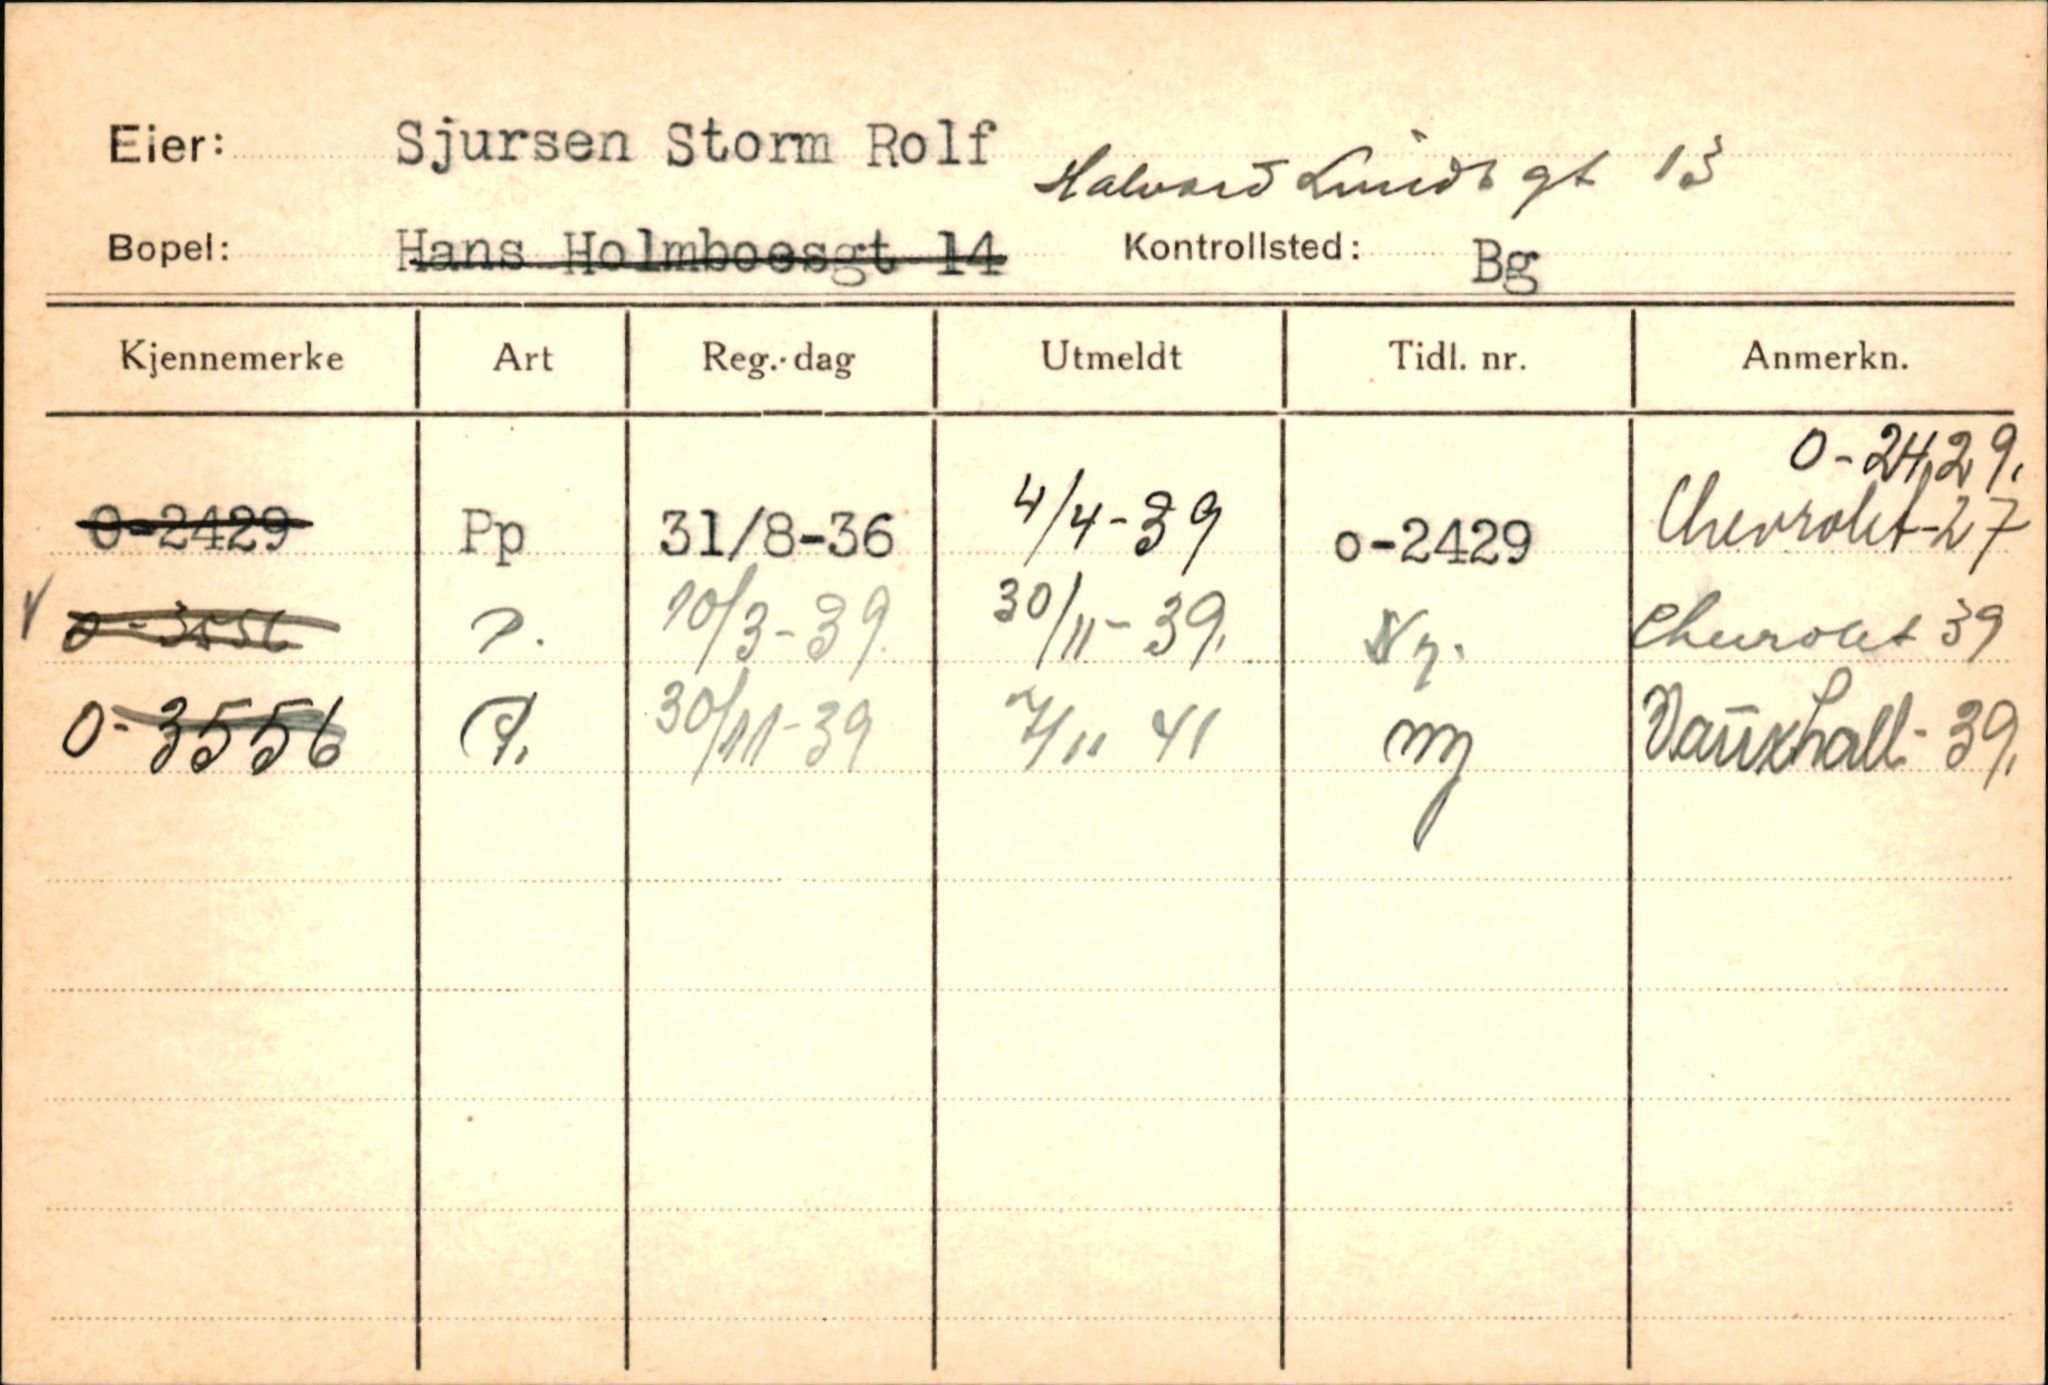 Eier: Sjursen Storm Rolf
Halvard gt 13
Bopel: Hans Holmboesgt 14 Kontrollsted: Bg
Kjennemerke Art Reg.-dag Utmeldt Tidl. nr. Anmerkn.
O-2429.
O-2429 Pp 31/8-36 4/4-39 o-2429 Chevrolet-27
O-3556 P. 10/3-39 30/11-39. Ny. Chevrolet 39
O-3556 P. 30/11-39 7/11 41 ny Vauxhall-39.